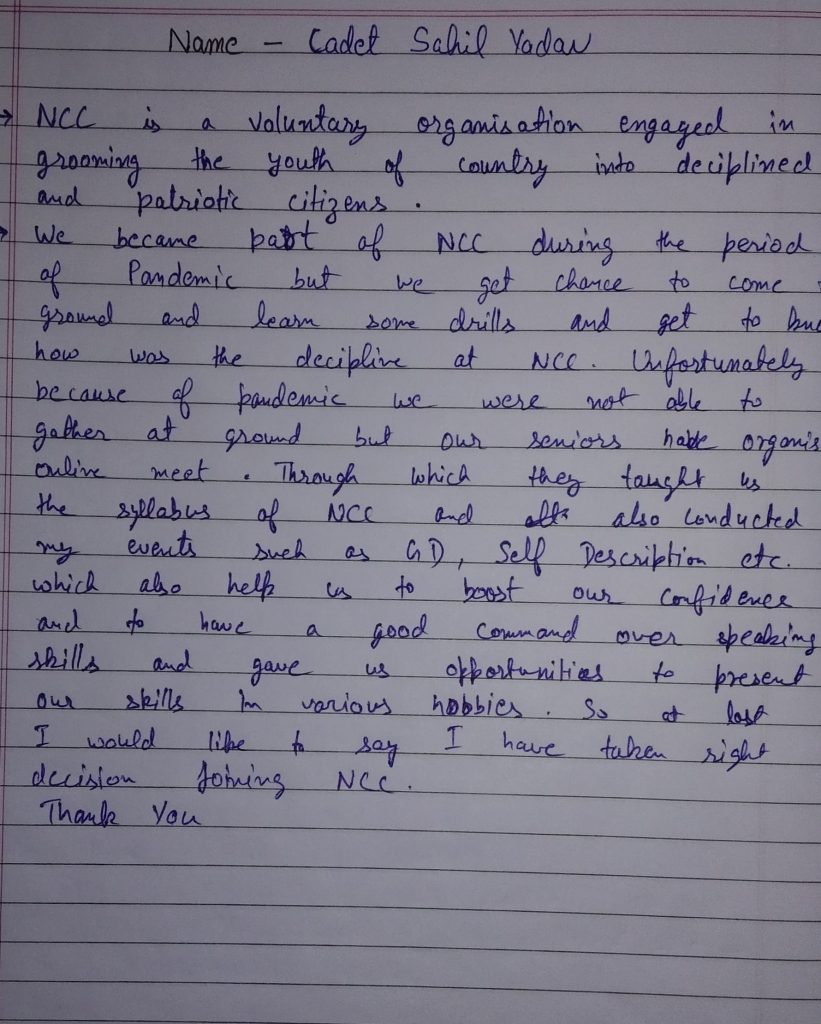 Name - Cadet Sahil Yadav
→ NCC is a voluntary organisation engaged in
grooming the youth of country into deciplined
and patriotic citizens .
→ We became part of NCC during the period
of Pandemic but we get chance to come
ground and learn some drills and get to
how was the decipline at NCC. Unfortunately
because of pandemic we were not able to
gather at ground but our seniors have organis
online meet . Through which they taught us
the syllabus of NCC and also conducted
my events such as GD, Self Description etc.
which also help us to boost our confidence
and to have a good command over speaking
skills and gave us opportunities to present
our skills in various hobbies . So at last
I would like to say I have taken right
decision joining NCC.
Thank You